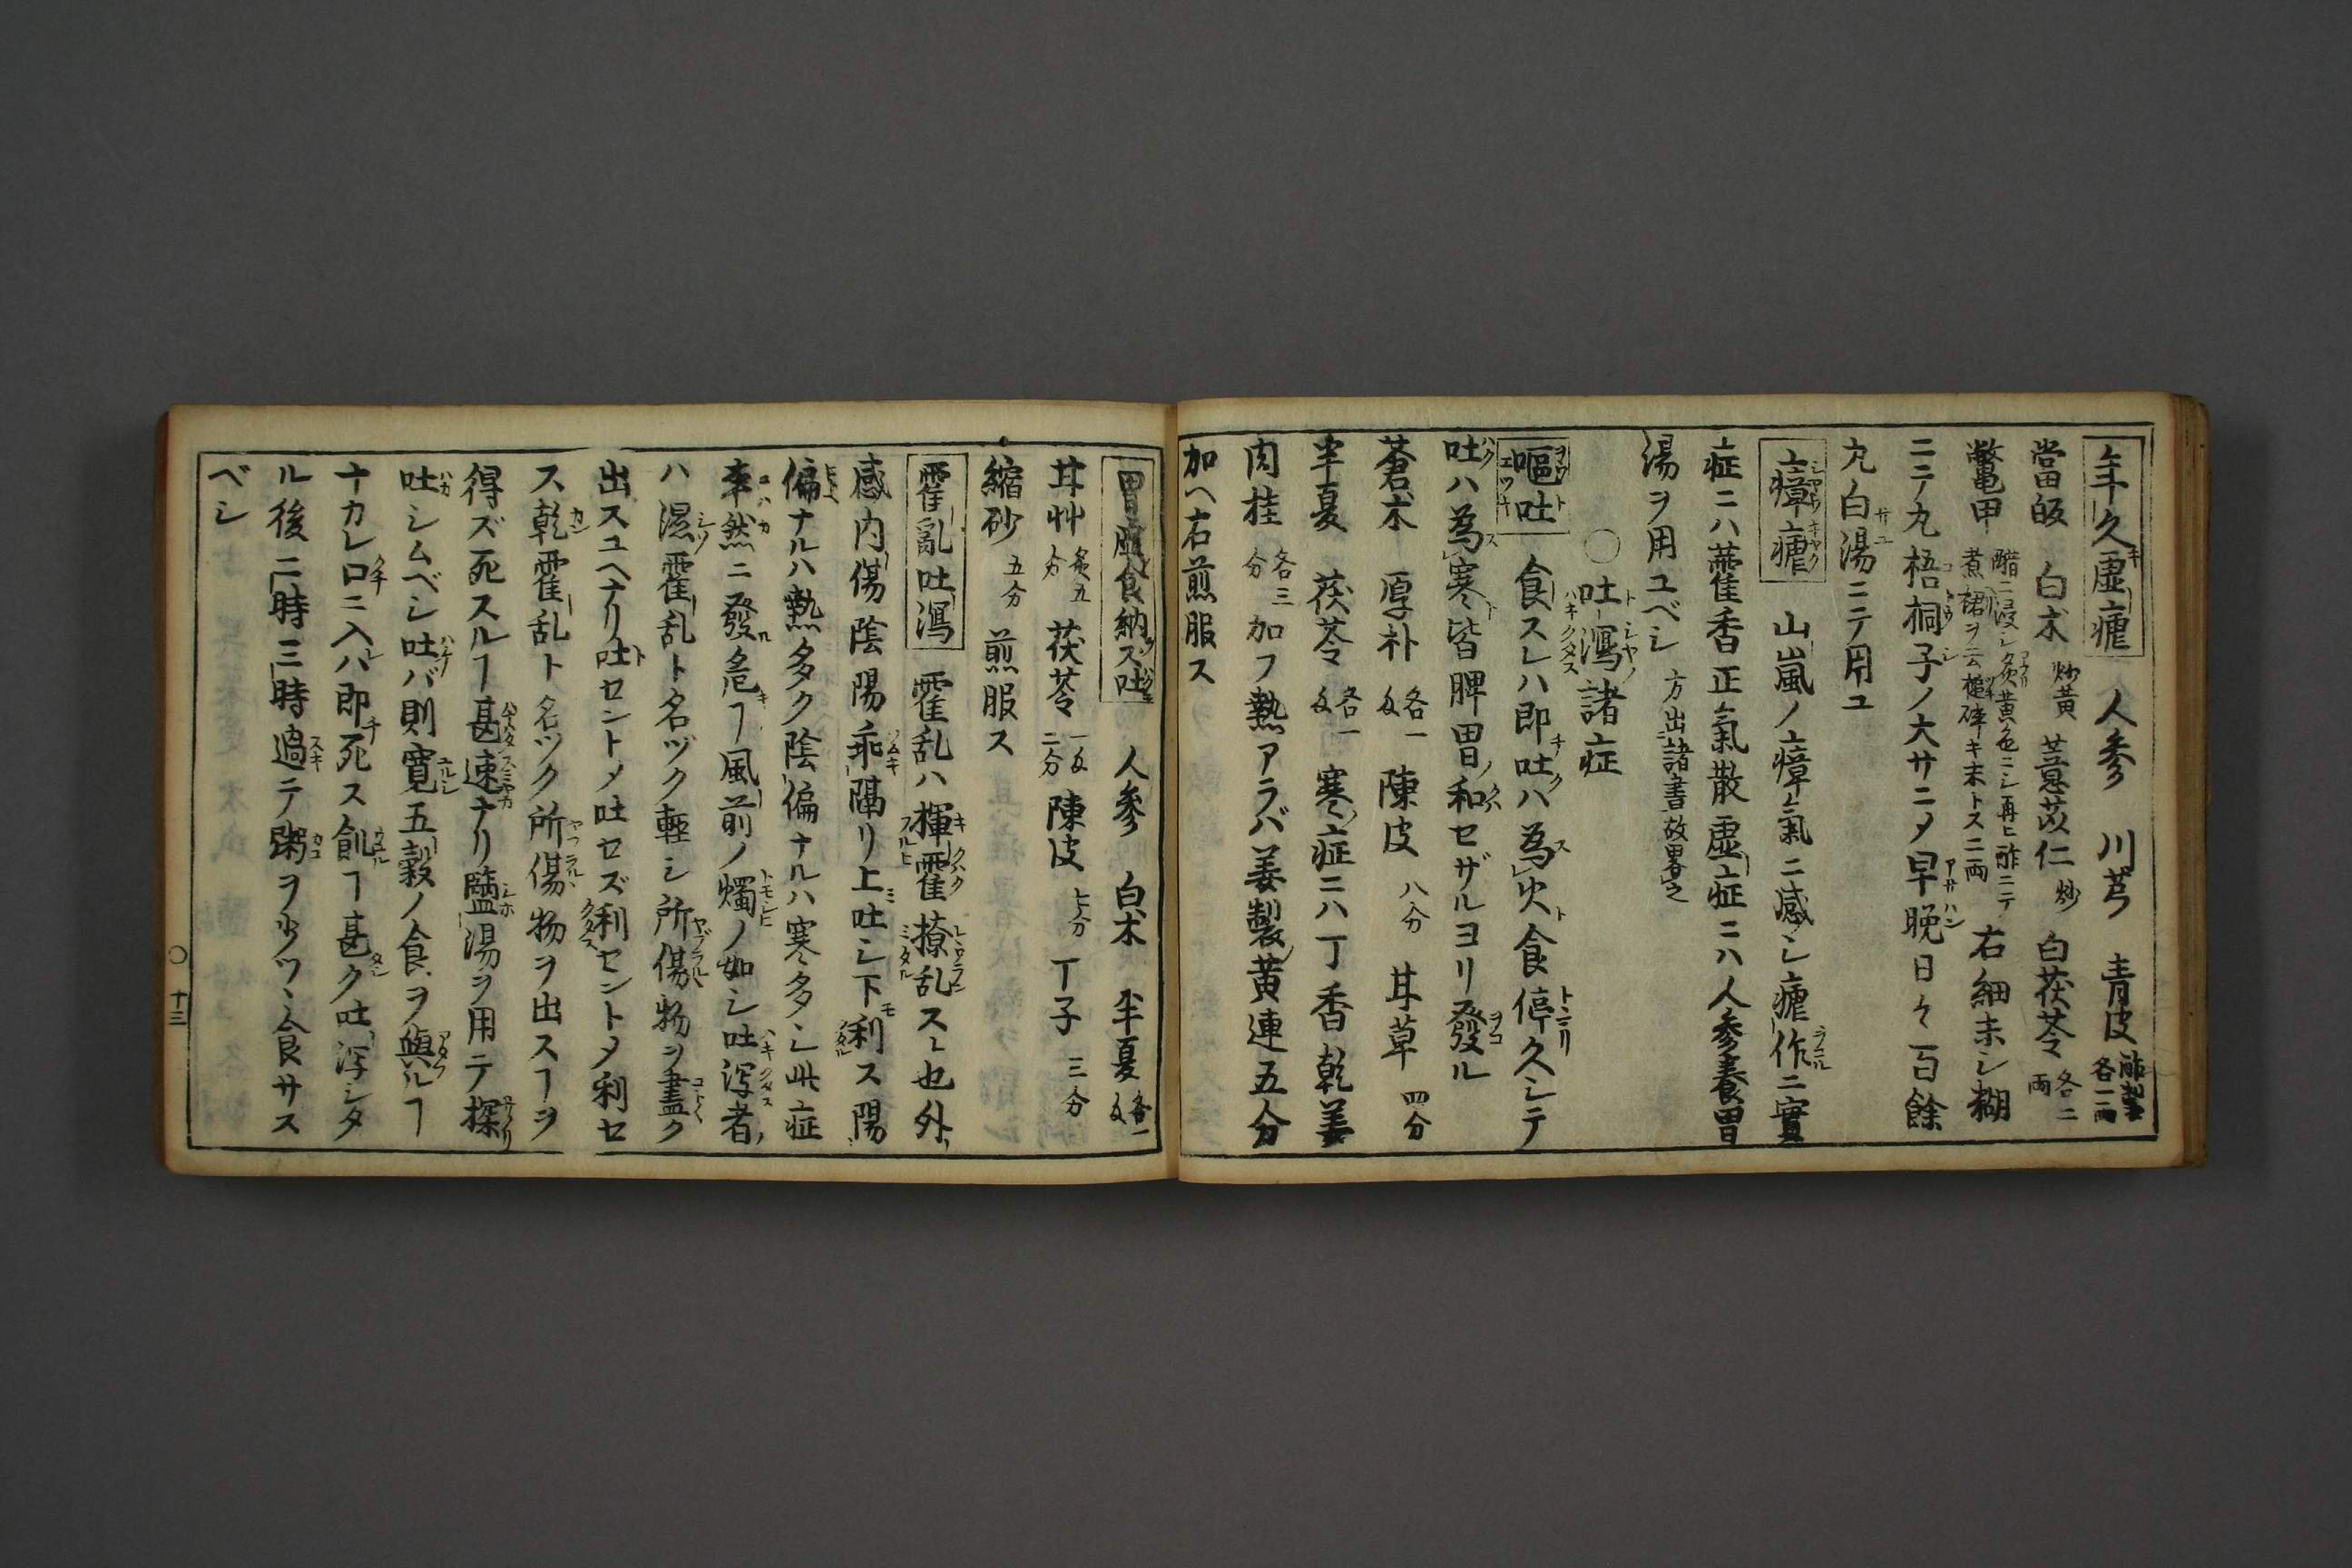 年久虚瘧 人参 川芎 青皮 醋製各一両
當皈 白朮 炒黄 薏苡仁 炒 白茯苓 各二両
鱉甲 醋ニ浸シ炙黄色ニシ再ヒ酢ニテ煮裙ヲ去槌碎キ末トス二両 右細末シ糊
ニテ丸梧桐子ノ大サニメ早晩日々一百餘
丸白湯ニテ用ユ
瘴瘧 山嵐ノ瘴氣ニ感シ瘧作ニ實
症ニハ藿香正氣散虚症ニハ人参養胃
湯ヲ用ユベシ 方出諸書故畧之
〇吐瀉諸症
嘔吐 食スレハ即吐ハ為火食停久シテ
吐ハ為寒皆脾胃和セザルヨリ發ル
蒼朮 厚朴 各一匁 陳皮 八分 甘草 四分
半夏 茯苓 各一匁 寒症ニハ丁香乾姜
肉桂 各三分 加フ熱アラバ姜製黄連五分
加ヘ右煎服ス
胃虚食納ス吐 人参 白朮 半夏 各一匁
甘艸 炙五分 茯苓 一匁二分 陳皮 七分 丁子 三分
縮砂 五分 煎服ス
霍亂吐瀉 霍乱ハ揮霍撩乱スル也外
感内傷陰陽乖隔リ上吐シ下利ス陽
偏ナルハ熱多ク陰偏ナルハ寒多シ此症
卒然ニ發危ヿ風前ノ燭ノ如シ吐泻者
ハ濕霍乱ト名ヅク輕シ所傷物ヲ盡ク
出スユヘナリ吐セントメ吐セズ利セントメ利セ
ス乾霍乱ト名ツク所傷物ヲ出スヿヲ
得ズ死スルヿ甚速ナリ鹽湯ヲ用テ探
吐シムベシ吐バ則寛五穀ノ食ヲ與ルヿ
ナカレ口ニ入バ即死ス飢ヿ甚ク吐泻シタ
ル後二時三時過テ粥ヲ少ツヽ食サス
ベシ
〇 十三